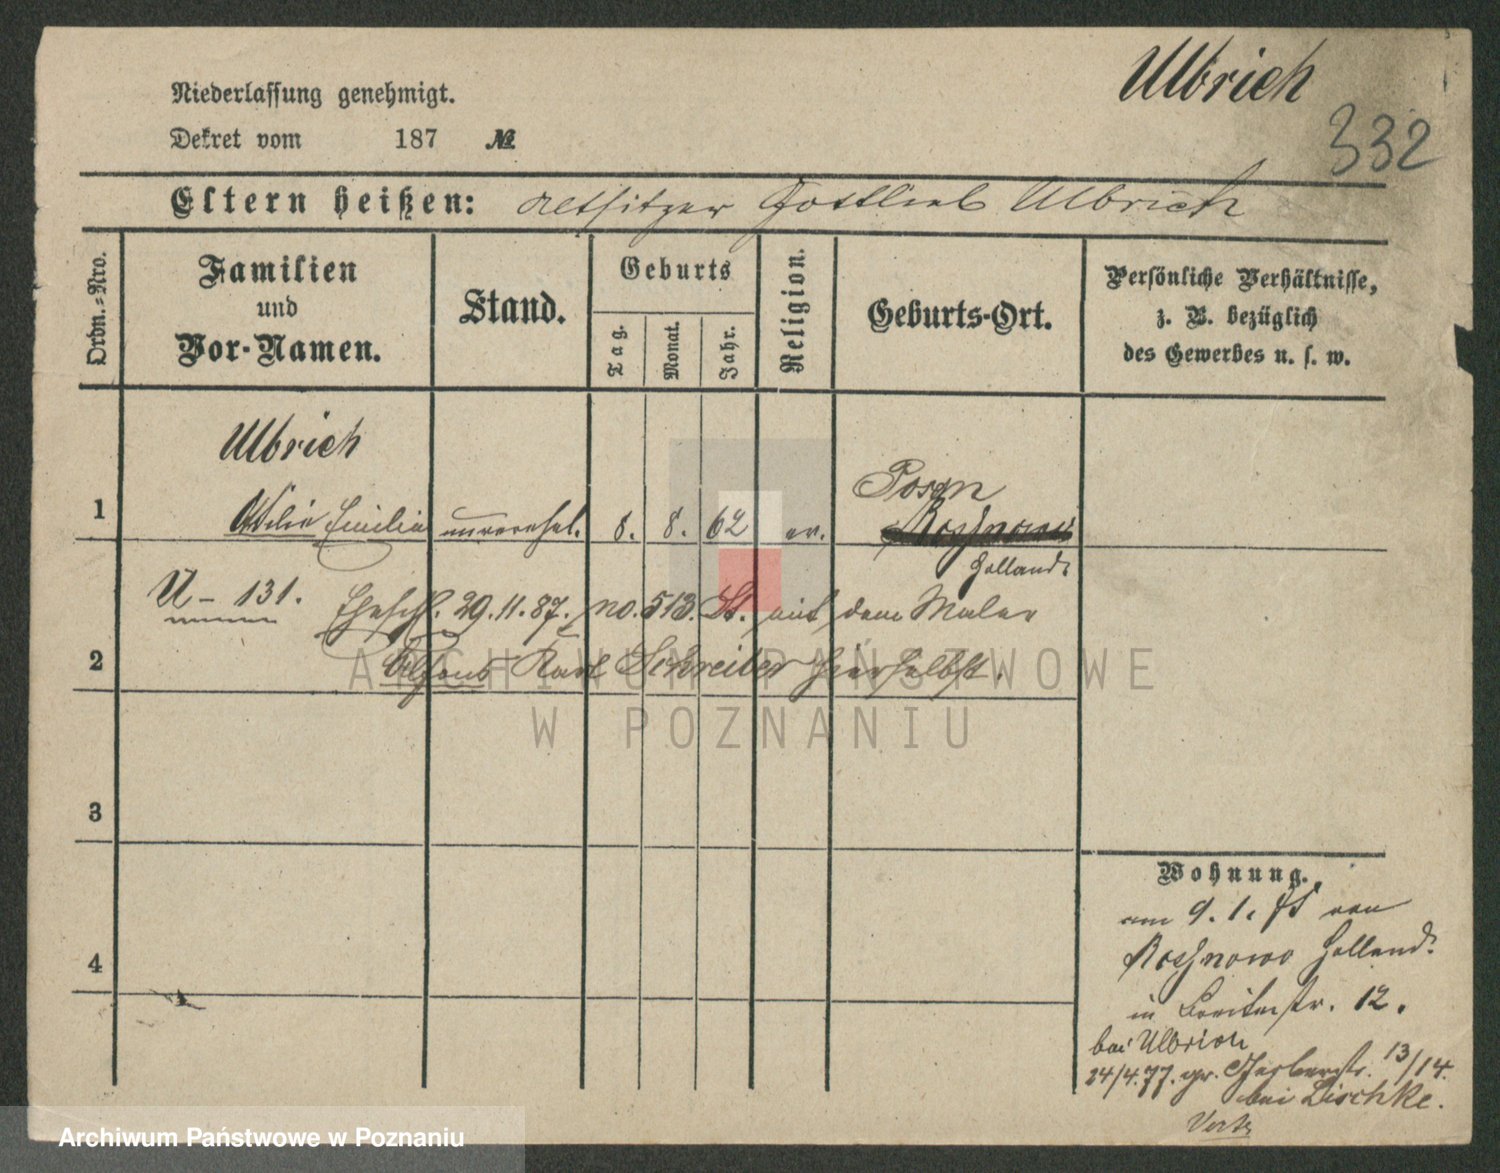 Ulbrich
332
Niederlassung genehmigt.
Dekret vom 187 №
Eltern heißen: Altsitzer Gottlieb Ulbrich
Ordn.-Nro.
Familien
und
Vor-Namen.
Stand.
Geburts
Tag.
Monat.
Jahr.
Religion.
Geburts-Ort.
Persönliche Verhältnisse,
z. B. bezüglich
des Gewerbes u. s. w.
Ulbrich
Posen
1 Emilie unverehel. 8. 8. 62 ev.
Holland.
U - 131. Eheschl. 29.11.87. no. 513. St. mit dem Maler
2 Alfons Karl Schreiber hierselbst.
3
4
Wohnung.
am 9. 1. von
Holland.
in Breitestr. 12.
bei Ulbrich
24/4.77. gr. Gerberstr. 13/14.
bei Lischke.
ARCHIWUM PAŃSTWOWE
W POZNANIU
Archiwum Państwowe w Poznaniu